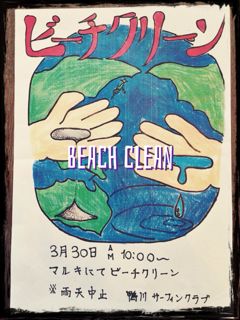 ビーチクリーン
BEACH CLEAN
3月30日 AM 10:00〜
マルキにてビーチクリーン
※雨天中止 鴨川サーフィンクラブ